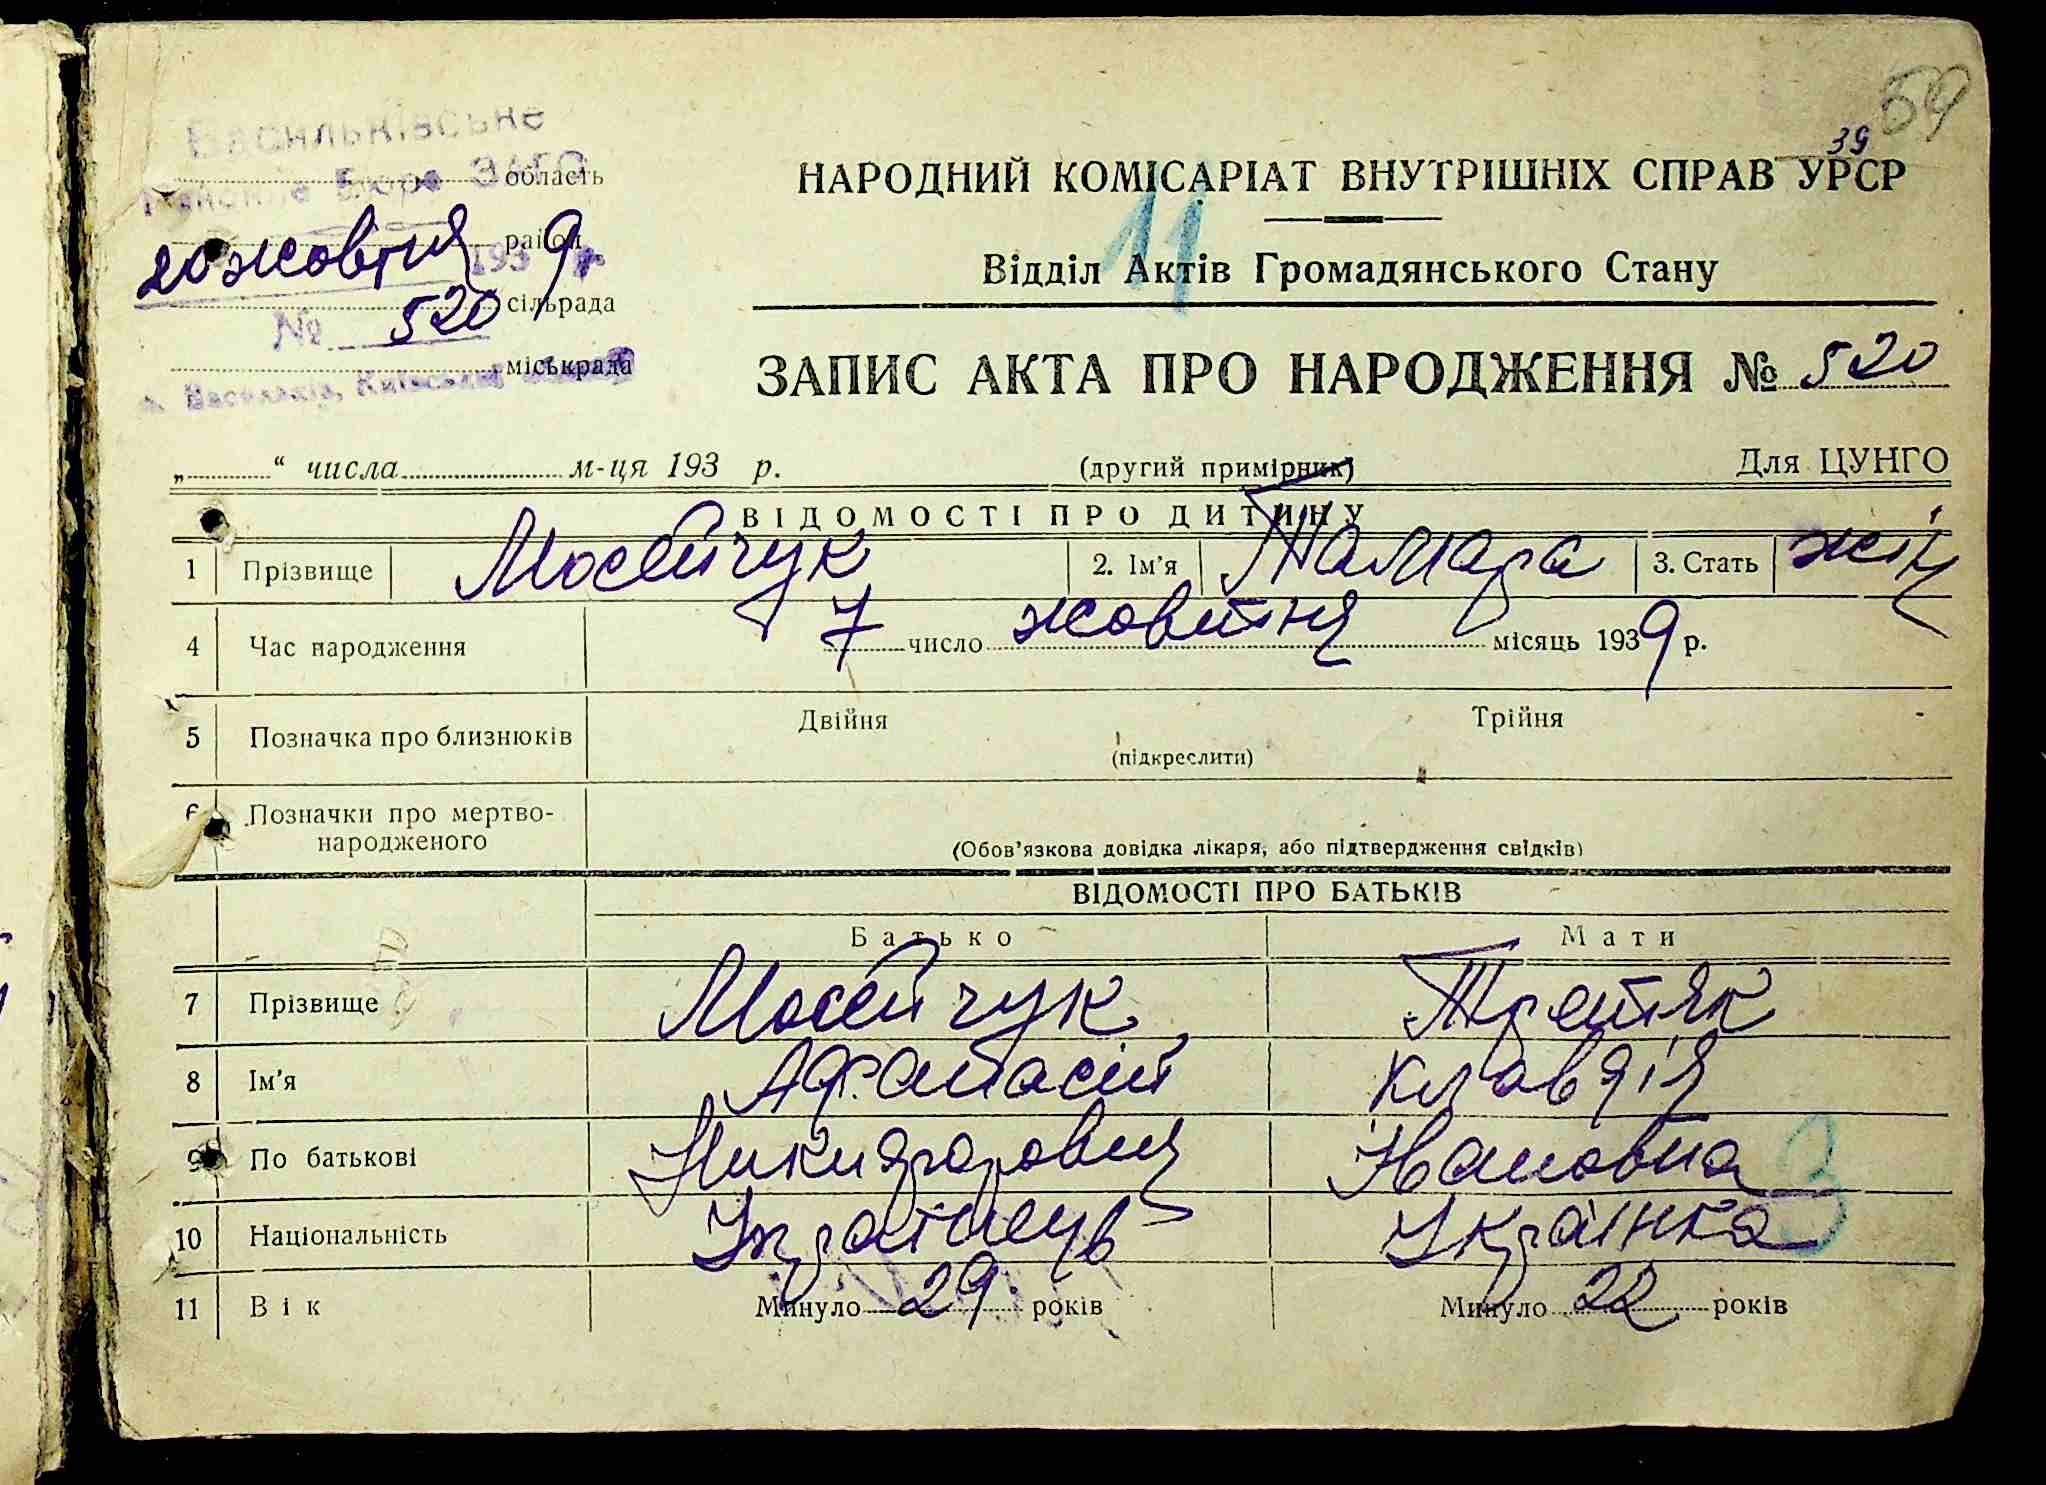 59
39
Васильківське
Районне Бюро ЗАГС
область
район
20 жовтня 1939 р.
сільрада
№ 520
міськрада
м. Васильків, Київської
НАРОДНИЙ КОМІСАРІАТ ВНУТРІШНІХ СПРАВ УРСР
11
Відділ Актів Громадянського Стану
ЗАПИС АКТА ПРО НАРОДЖЕННЯ № 520
„ “ числа м-ця 193 р. (другий примірник) Для ЦУНГО
ВІДОМОСТІ ПРО ДИТИНУ
1 Прізвище Мосейчук 2. Ім'я Тамара 3. Стать жін
4 Час народження 7 число жовтня місяць 1939 р.
5 Позначка про близнюків Двійня Трійня
(підкреслити)
6 Позначки про мертво-
народженого
(Обов'язкова довідка лікаря, або підтвердження свідків)
ВІДОМОСТІ ПРО БАТЬКІВ
Батько Мати
7 Прізвище Мосейчук Третяк
8 Ім'я Афанасій Клавдія
9 По батькові Никифорович Івановна
3
10 Національність Українець Українка
11 Вік Минуло 29 років Минуло 22 років